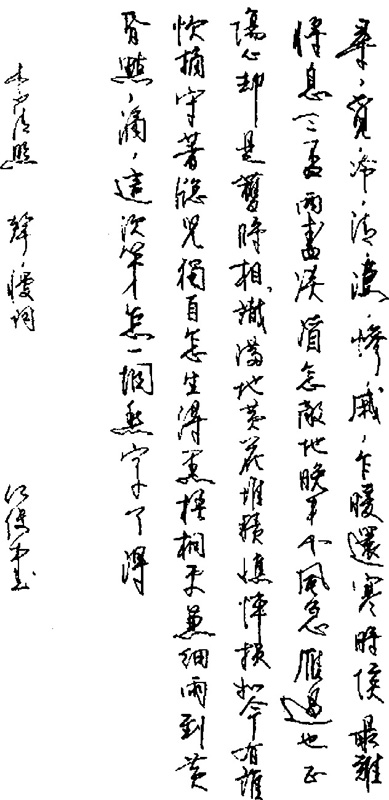 尋〻覓〻冷〻清〻淒〻慘〻戚〻乍暖還寒時候最難
將息三盃兩盞淡酒怎敵他晚来風急雁過也正
傷心却是舊時相識滿地黃花堆積憔悴損如今有誰
忺摘守著窗兒獨自怎生得黑梧桐更兼細雨到黃
昏點〻滴〻這次第怎一個愁字了得
李清照 聲〻慢詞